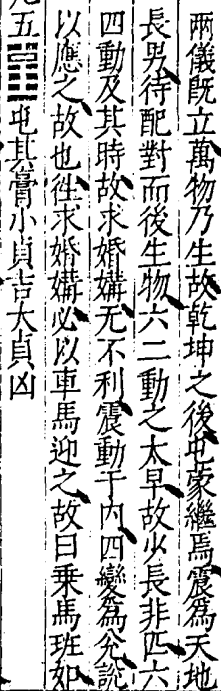 兩儀既立萬物乃生故乾坤之後屯蒙繼焉震爲天地
長男待配對而後生物六二動之太早故少長非匹六
四動及其時故求婚媾无不利震動于内四變爲兊說
以應之故也徃求婚媾必以車馬迎之故曰乗馬班如
五䷂屯其膏小貞吉大貞凶